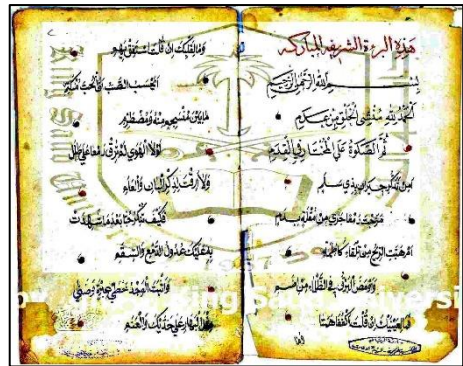 هذه البردة الشريفة المباركه
بسم الله الرحمن الرحيم
الحمد لله منشى الخلق من عدم
ثم الصلوة على المختار في القدم
امن تذكر جيران بذي سلم
مزجت دمعا جرى من مقلة بدم
ام هبت الريح من تلقاء كاظمة
واومض البرق في الظلماء من اضم
فما لعينيك ان قلت اكففا همتا
وما لقلبك ان قلت استفق يهم
ايحسب الصب ان الحب منكتم
ما بين منسجم منه ومضطرم
لولا الهوى لم ترق دمعا على طلل
ولا ارقت لذكر البان والعلم
فكيف تنكر حبا بعد ما شهدت
به عليك عدول الدمع والسقم
واثبت الوجد خطي عبرة وضنى
مثل البهار على خديك والعنم